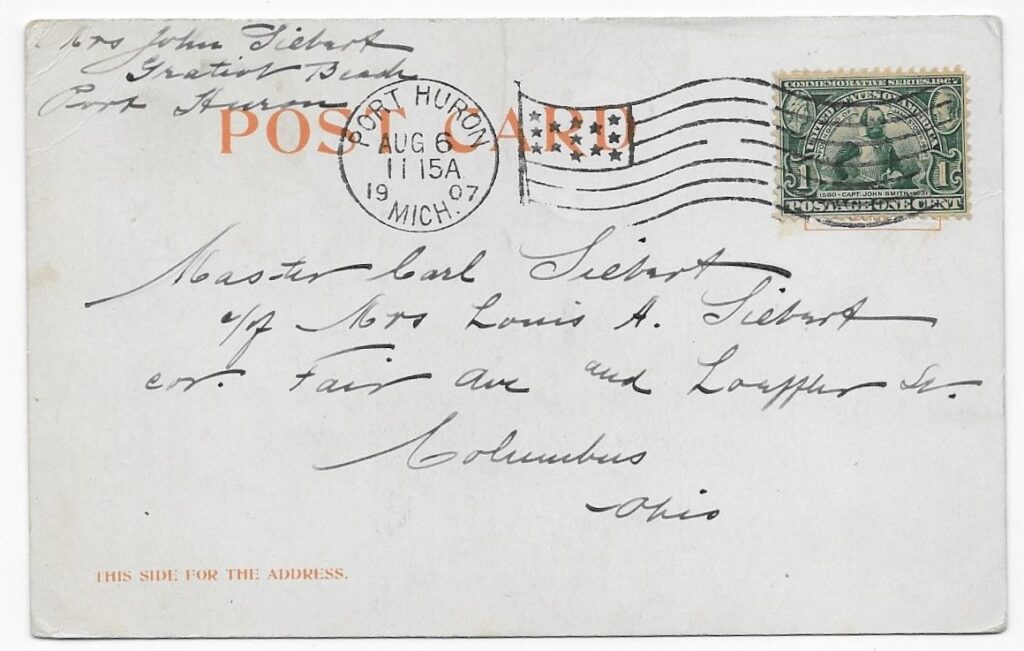 Mrs John Siebert
Gratiot Beach
Port Huron
POST CARD
PORT HURON
AUG 6
11 15A
1907
MICH.
COMMEMORATIVE SERIES 1907
UNITED STATES OF AMERICA
1 1
1580 CAPT. JOHN SMITH 1631
POSTAGE ONE CENT
Master Carl Siebert
c/o Mrs Louis A. Siebert
cor. Fair Ave and Loeffler St.
Columbus
Ohio
THIS SIDE FOR THE ADDRESS.